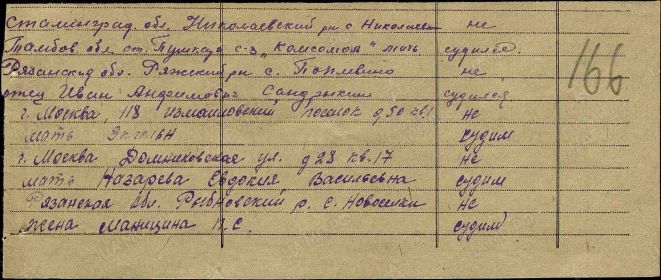 Сталинград. обл. Николаевский рн с. Николаевк не
Тамбов. обл. ст. Пушкар с-з "Комсомол" мать судился.
Рязанская обл. Ряжский рн с. не
отец Иван судился
г. Москва, 118 Измайловский поселок д 50 кв 1 не
мать судим
г. Москва Домниковская ул. д 28 кв. 17 не
мать Назарева Евдокия Васильевна судим
Рязанская обл. Рыбновский р. с. Новоселки не
жена Маницина П. С. судим
166